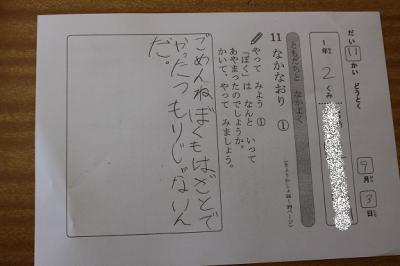 だい11かい どうとく
1年2くみ
9月3日
ともだちと なかよく
11 なかなおり ①
やって みよう ①
「ぼく」は なんと いって
あやまったのでしょうか。
かいて、やって みましょう。
ごめんねぼくもはざとで
やったつもりじゃないん
だ。